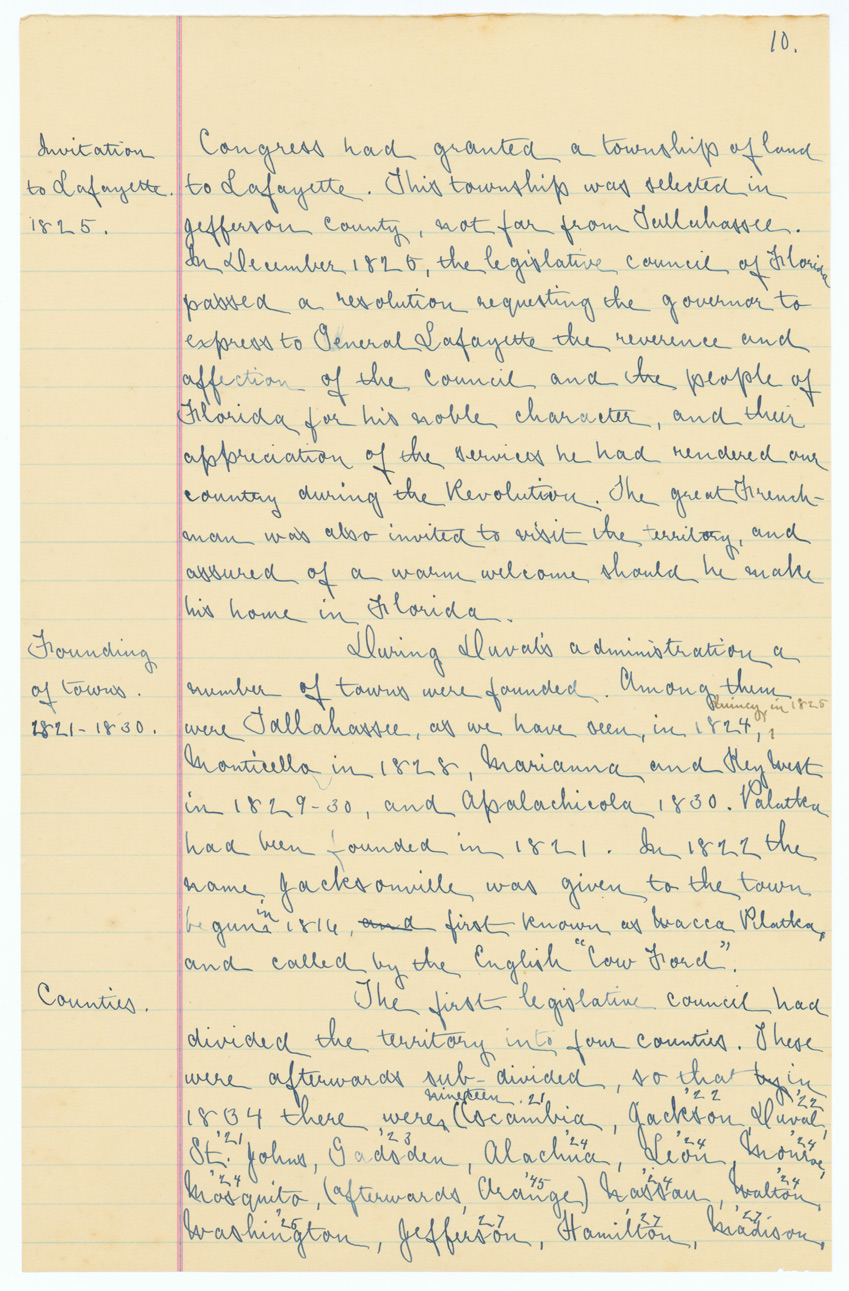 10.
Invitation
to Lafayette.
1825.
Congress had granted a township of land
to Lafayette. This township was selected in
Jefferson county, not far from Tallahassee.
In December 1825, the legislative council of Florida
passed a resolution requesting the governor to
express to General Lafayette the reverence and
affection of the council and the people of
Florida for his noble character, and their
appreciation of the services he had rendered our
country during the Revolution. The great French-
man was also invited to visit the territory, and
assured of a warm welcome should he make
his home in Florida.
Founding
of towns.
1821-1830.
During Duval's administration a
number of towns were founded. Among them
Quincy in 1825
were Tallahassee, as we have seen, in 1824,
Monticello in 1828, Marianna and Key West
in 1829-30, and Apalachicola 1830. Palatka
had been founded in 1821. In 1822 the
name Jacksonville was given to the town
begun in 1816, and first known as Wacca Pilatka,
and called by the English "Cow Ford".
Counties.
The first legislative council had
divided the territory into four counties. These
were afterwards sub-divided, so that by in
1834 there were nineteen Escambia, '21 Jackson, '22 Duval, '22
St. Johns, '21 Gadsden, '23 Alachua, '24 Leon, '24 Monroe, '24
Mosquito, '24 (afterwards, Orange '45) Nassau, '24 Walton, '24
Washington, '25 Jefferson, '27 Hamilton, '27 Madison, '27